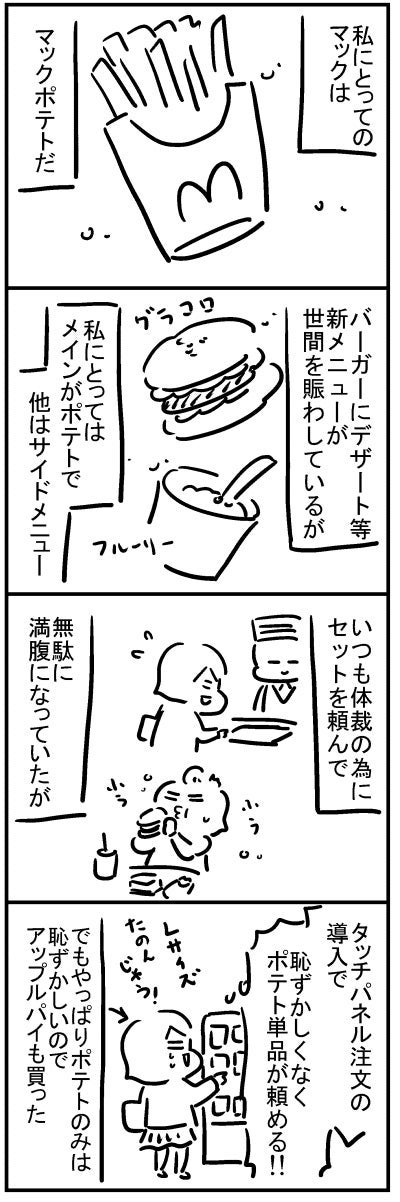 私にとっての
マックは
マックポテトだ
バーガーにデザート等
新メニューが
世間を賑わしているが
グラコロ
フルーリー
私にとっては
メインがポテトで
他はサイドメニュー
いつも体裁の為に
セットを頼んで
ふぅ
ふぅ
無駄に
満腹になっていたが
タッチパネル注文の
導入で
恥ずかしくなく
ポテト単品が頼める!!
Lサイズ
たのん
じゃう!
でもやっぱりポテトのみは
恥ずかしいので
アップルパイも買った